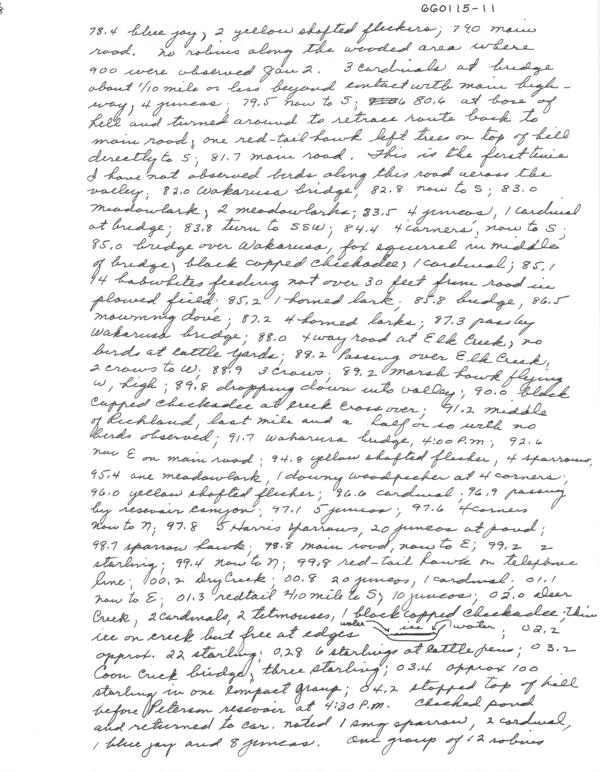 GG0115-11
78.4 blue jay, 2 yellow shafted flickers; 79.0 main
road. No robins along the wooded area where
900 were observed Jan 2. 3 cardinals at bridge
about 1/10 mile or less beyond contact with main high-
way, 4 juncos; 79.5 now to S; 80.6 at base of
hill and turned around to retrace route back to
main road, one red-tail hawk left trees on top of hill
directly to S; 81.7 main road. This is the first time
I have not observed birds along this road across the
valley; 82.0 Wakarusa bridge, 82.8 now to S; 83.0
meadowlark, 2 meadowlarks; 83.5 4 juncos, 1 cardinal
at bridge; 83.8 turn to SSW; 84.4 4 corners, now to S;
85.0 bridge over Wakarusa, fox squirrel in middle
of bridge, black capped chickadee, 1 cardinal; 85.1
14 bobwhites feeding not over 30 feet from road in
plowed field; 85.2 1 horned lark; 85.8 bridge, 86.5
mourning dove; 87.2 4 horned larks; 87.3 pass by
Wakarusa bridge; 88.0 4 way road at Elk Creek, no
birds at cattle yards; 88.2 Passing over Elk Creek,
2 crows to W; 88.9 3 crows; 89.2 marsh hawk flying
W, high; 89.8 dropping down into valley; 90.0 black
capped chickadee at creek cross over; 91.2 middle
of Richland, last mile and a half or so with no
birds observed; 91.7 Wakarusa bridge, 4:00 P.M; 92.6
now E on main road; 94.8 yellow shafted flicker, 4 sparrows,
95.4 one meadowlark, 1 downy woodpecker at 4 corners;
96.0 yellow shafted flicker; 96.6 cardinal; 96.9 passing
by resevoir canyon; 97.1 5 juncos; 97.6 4 corners
now to N; 97.8 5 Harris sparrows, 20 juncos at pond;
98.7 sparrow hawk; 98.8 main road, now to E; 99.2 2
starling; 99.4 now to N; 99.8 red-tail hawk on telephone
line; 00.2 Dry Creek; 00.8 20 juncos, 1 cardinal; 01.1
now to E; 01.3 redtail 4/10 mile to S, 10 juncos; 02.0 Deer
Creek, 2 cardinals, 2 titmouses, 1 black capped chickadee, thin
ice on creek but free at edges water ice water; 02.2
approx. 22 starling; 0.28 6 starlings at cattle pens; 03.2
Coon Creek bridge, three starling; 03.4 approx 100
starling in one compact group; 04.2 stopped top of hill
before Peterson resevoir at 4:30 P.M. Checked pond
and returned to car. noted 1 song sparrow, 2 cardinal,
1 blue jay and 8 juncos. One group of 12 robins